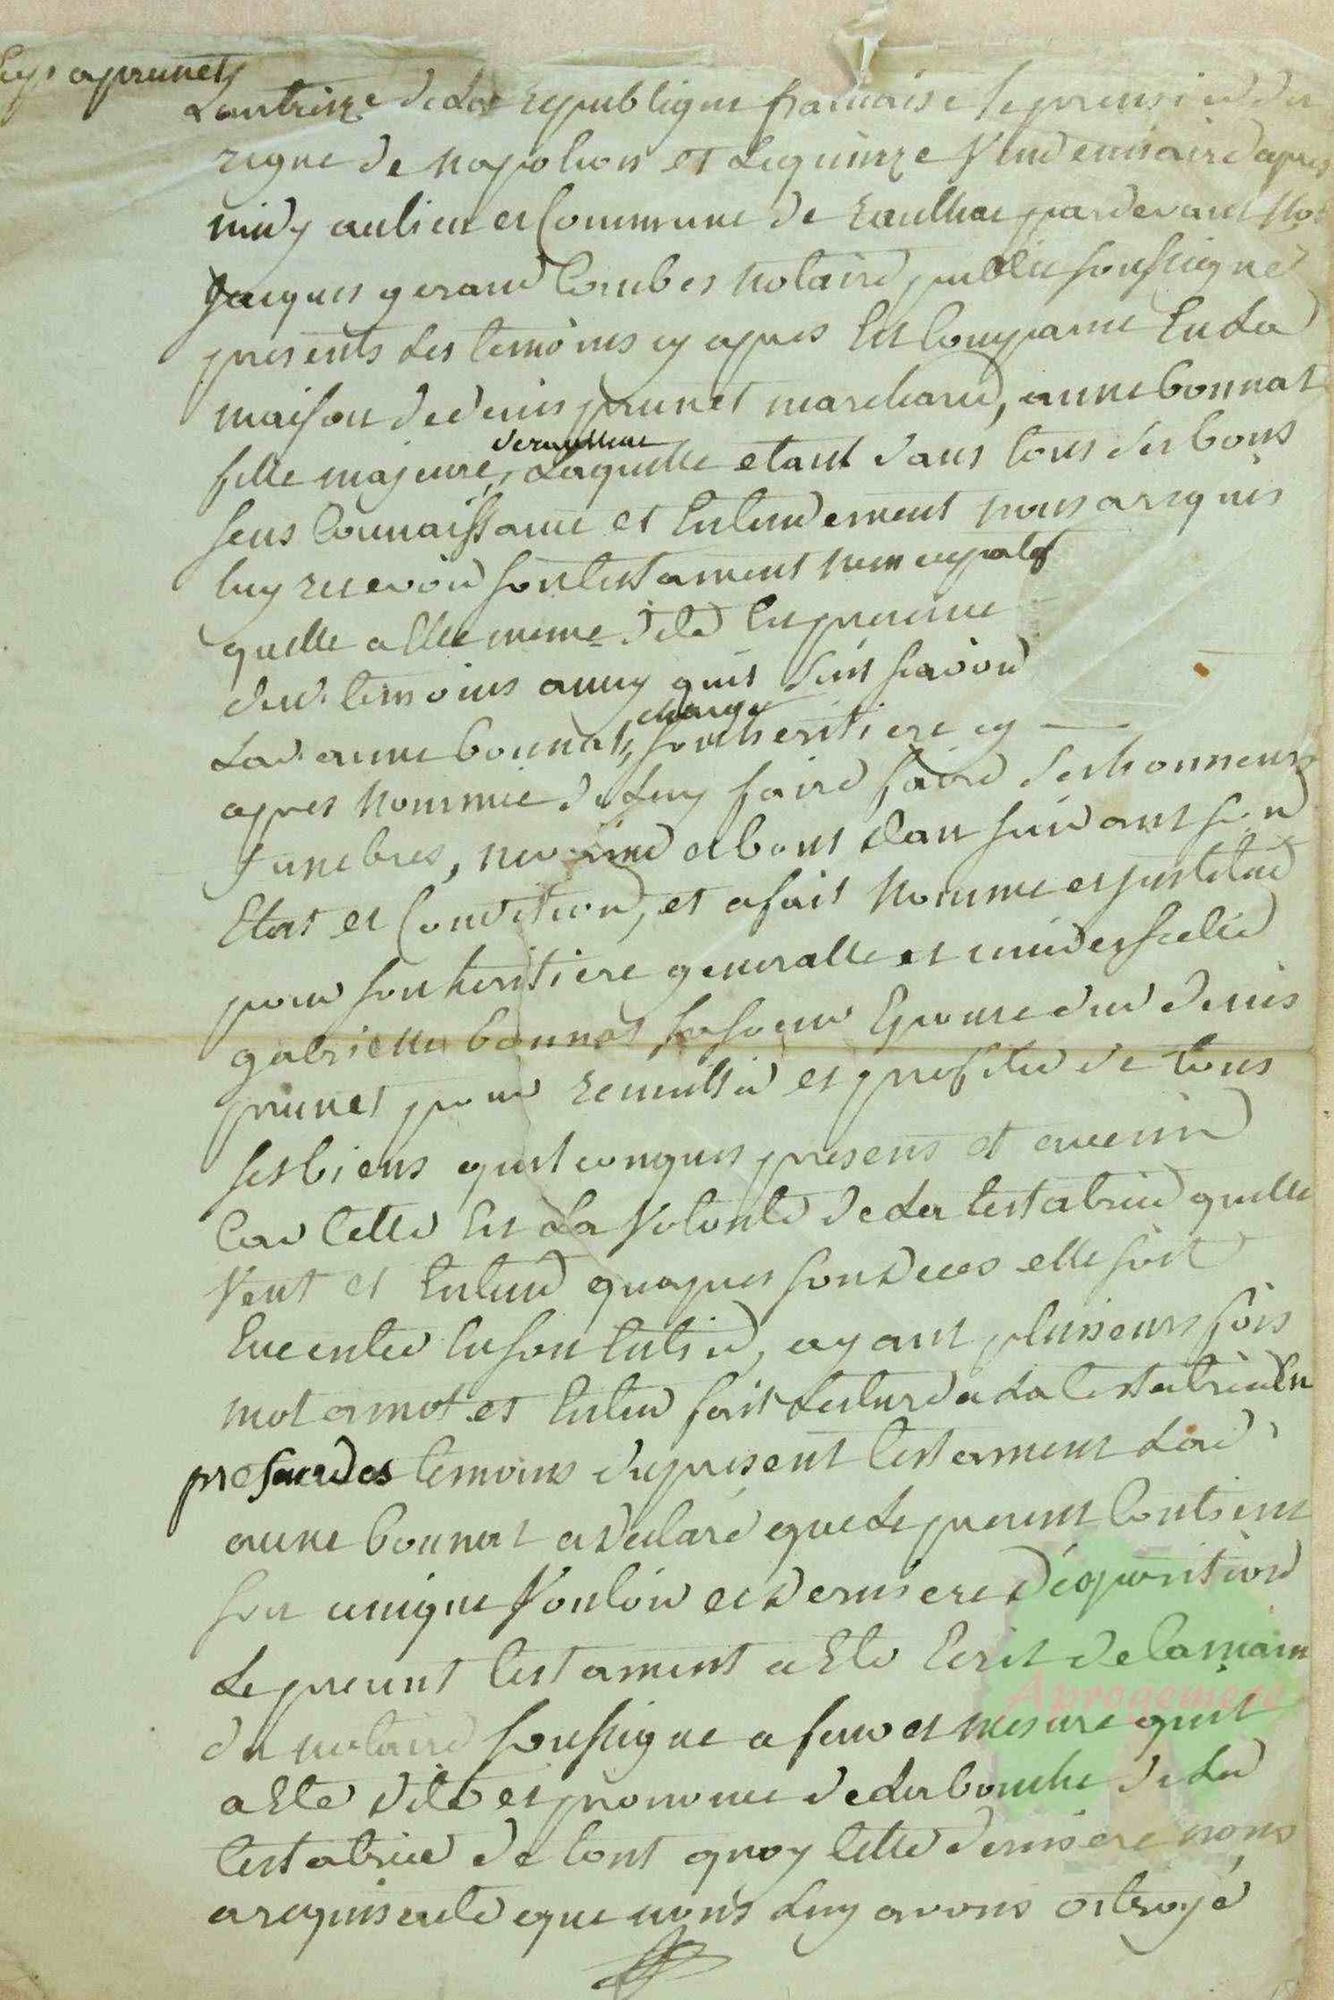 aprunet
Lantreize de La republique francaise le premier du
regne de napoleon et Lequinze Vendemiaire apres
midy aulieu et Commune de raulhac pardevant Nous
Jacques geraud Combes Notaire public soussigné
presents Les temoins cy apres Est Comparue En La
maison de denis prunet marchand, anne bonnat
fille majeure, deraulhac Laquelle etant dans tous ses bons
sens Connaissance et Entendement nous a requis
luy recevoir son testament nuncupatif
quelle a Elle meme dité En presence
desd. temoins ainsy quil suit scavoir
Lad. anne bonnat, charge son heritiere cy
apres Nommée de Luy faire faire ses honneurs
funebres, neuvaine et bout dan suivant son
Etat et Condition, et a fait Nommé et institué
pour son heritiere generalle et universelle
gabrielle bonnat, sa soeur Epouse dud denis
prunet pour recuillir et profiter de tous
ses biens quelconques presens et avenir
Car Cette Est La Volonté de La testatrice quelle
Veut et Entend quapres son deces elle soit
Executée En son Entier, ayant plusieurs fois
mot amot et Entier fait Lecture a La testatrice En
presence des temoins du present testament Lad.
anne bonnat a declaré que Le present Contient
son unique Vouloir et derniere disposition
Le present testament a Eté Ecrit de la main
du notaire soussigné a fur et mesure quil
a Eté dité et prononcé de La bouche de La
testatrice de tout quoy Cette derniere nous
a requis acte que nous Luy avons octroyé